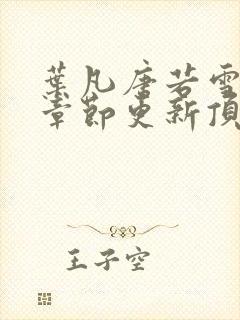 葉凡唐若雪
章節更新頂
王子空